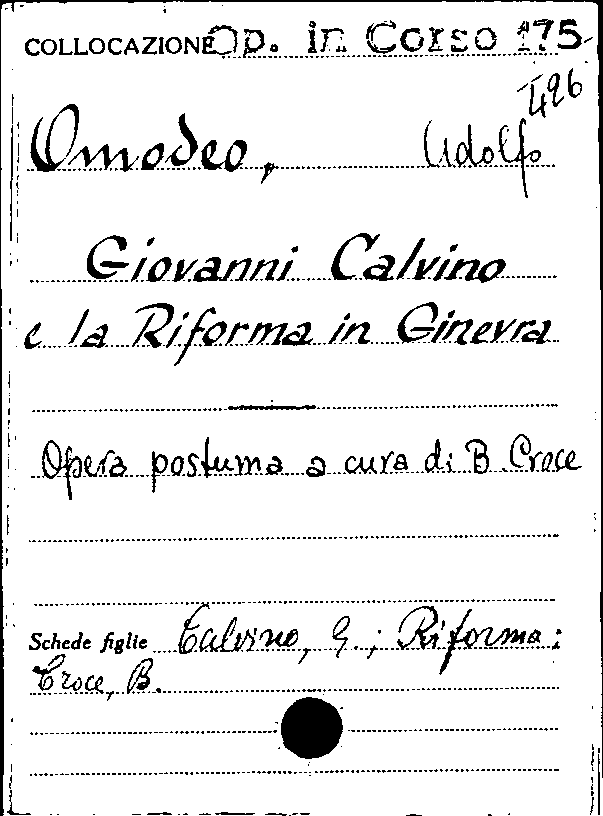 COLLOCAZIONE Op. in Corso 175
I496
Omodeo, Adolfo
Giovanni Calvino
e la Riforma in Ginevra
Opera postuma a cura di B. Croce
Schede figlie Calvino, G.; Riforma;
Croce, B.